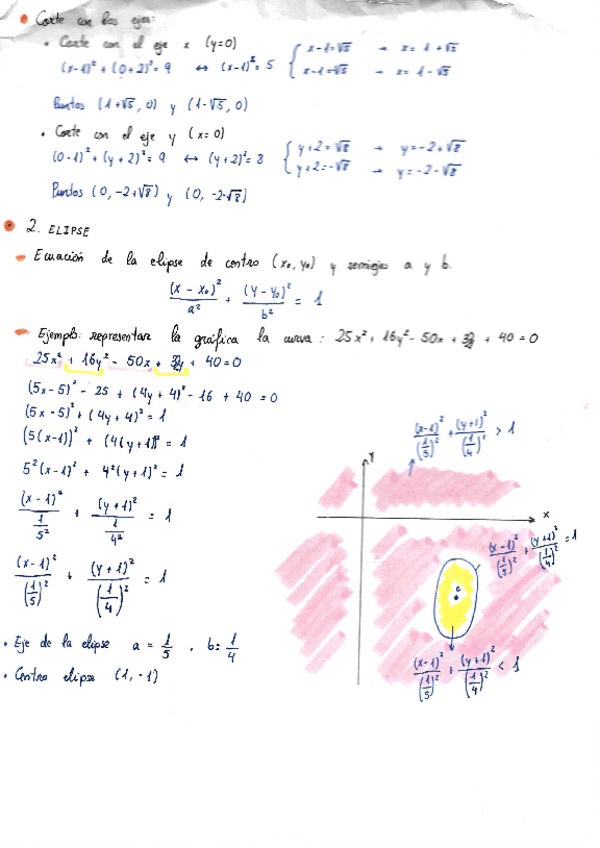 • Corte con los ejes:
• Corte con el eje x (y=0)
(x-1)² + (0+2)² = 9 ↔ (x-1)² = 5 { x-1=√5 → x= 1+√5
x-1=-√5 → x= 1-√5
Puntos (1+√5, 0) y (1-√5, 0)
• Corte con el eje y (x=0)
(0-1)² + (y+2)² = 9 ↔ (y+2)² = 8 { y+2=√8 → y=-2+√8
y+2=-√8 → y=-2-√8
Puntos (0, -2+√8) y (0, -2-√8)
• 2. ELIPSE
Ecuación de la elipse de centro (x₀, y₀) y semiejes a y b.
(x - x₀)²/a² + (y - y₀)²/b² = 1
Ejemplo: representar la gráfica la curva: 25x² + 16y² - 50x + 32y + 40 = 0
25x² + 16y² - 50x + 32y + 40 = 0
(5x-5)² - 25 + (4y+4)² - 16 + 40 = 0
(5x-5)² + (4y+4)² = 1
(5(x-1))² + (4(y+1))² = 1
5²(x-1)² + 4²(y+1)² = 1
(x-1)²/(1/5²) + (y+1)²/(1/4²) = 1
(x-1)²/(1/5)² + (y+1)²/(1/4)² = 1
• Eje de la elipse a = 1/5 , b = 1/4
• Centro elipse (1, -1)
(x-1)²/(1/5)² + (y+1)²/(1/4)² > 1
Y
X
(x-1)²/(1/5)² + (y+1)²/(1/4)² = 1
C
(x-1)²/(1/5)² + (y+1)²/(1/4)² < 1